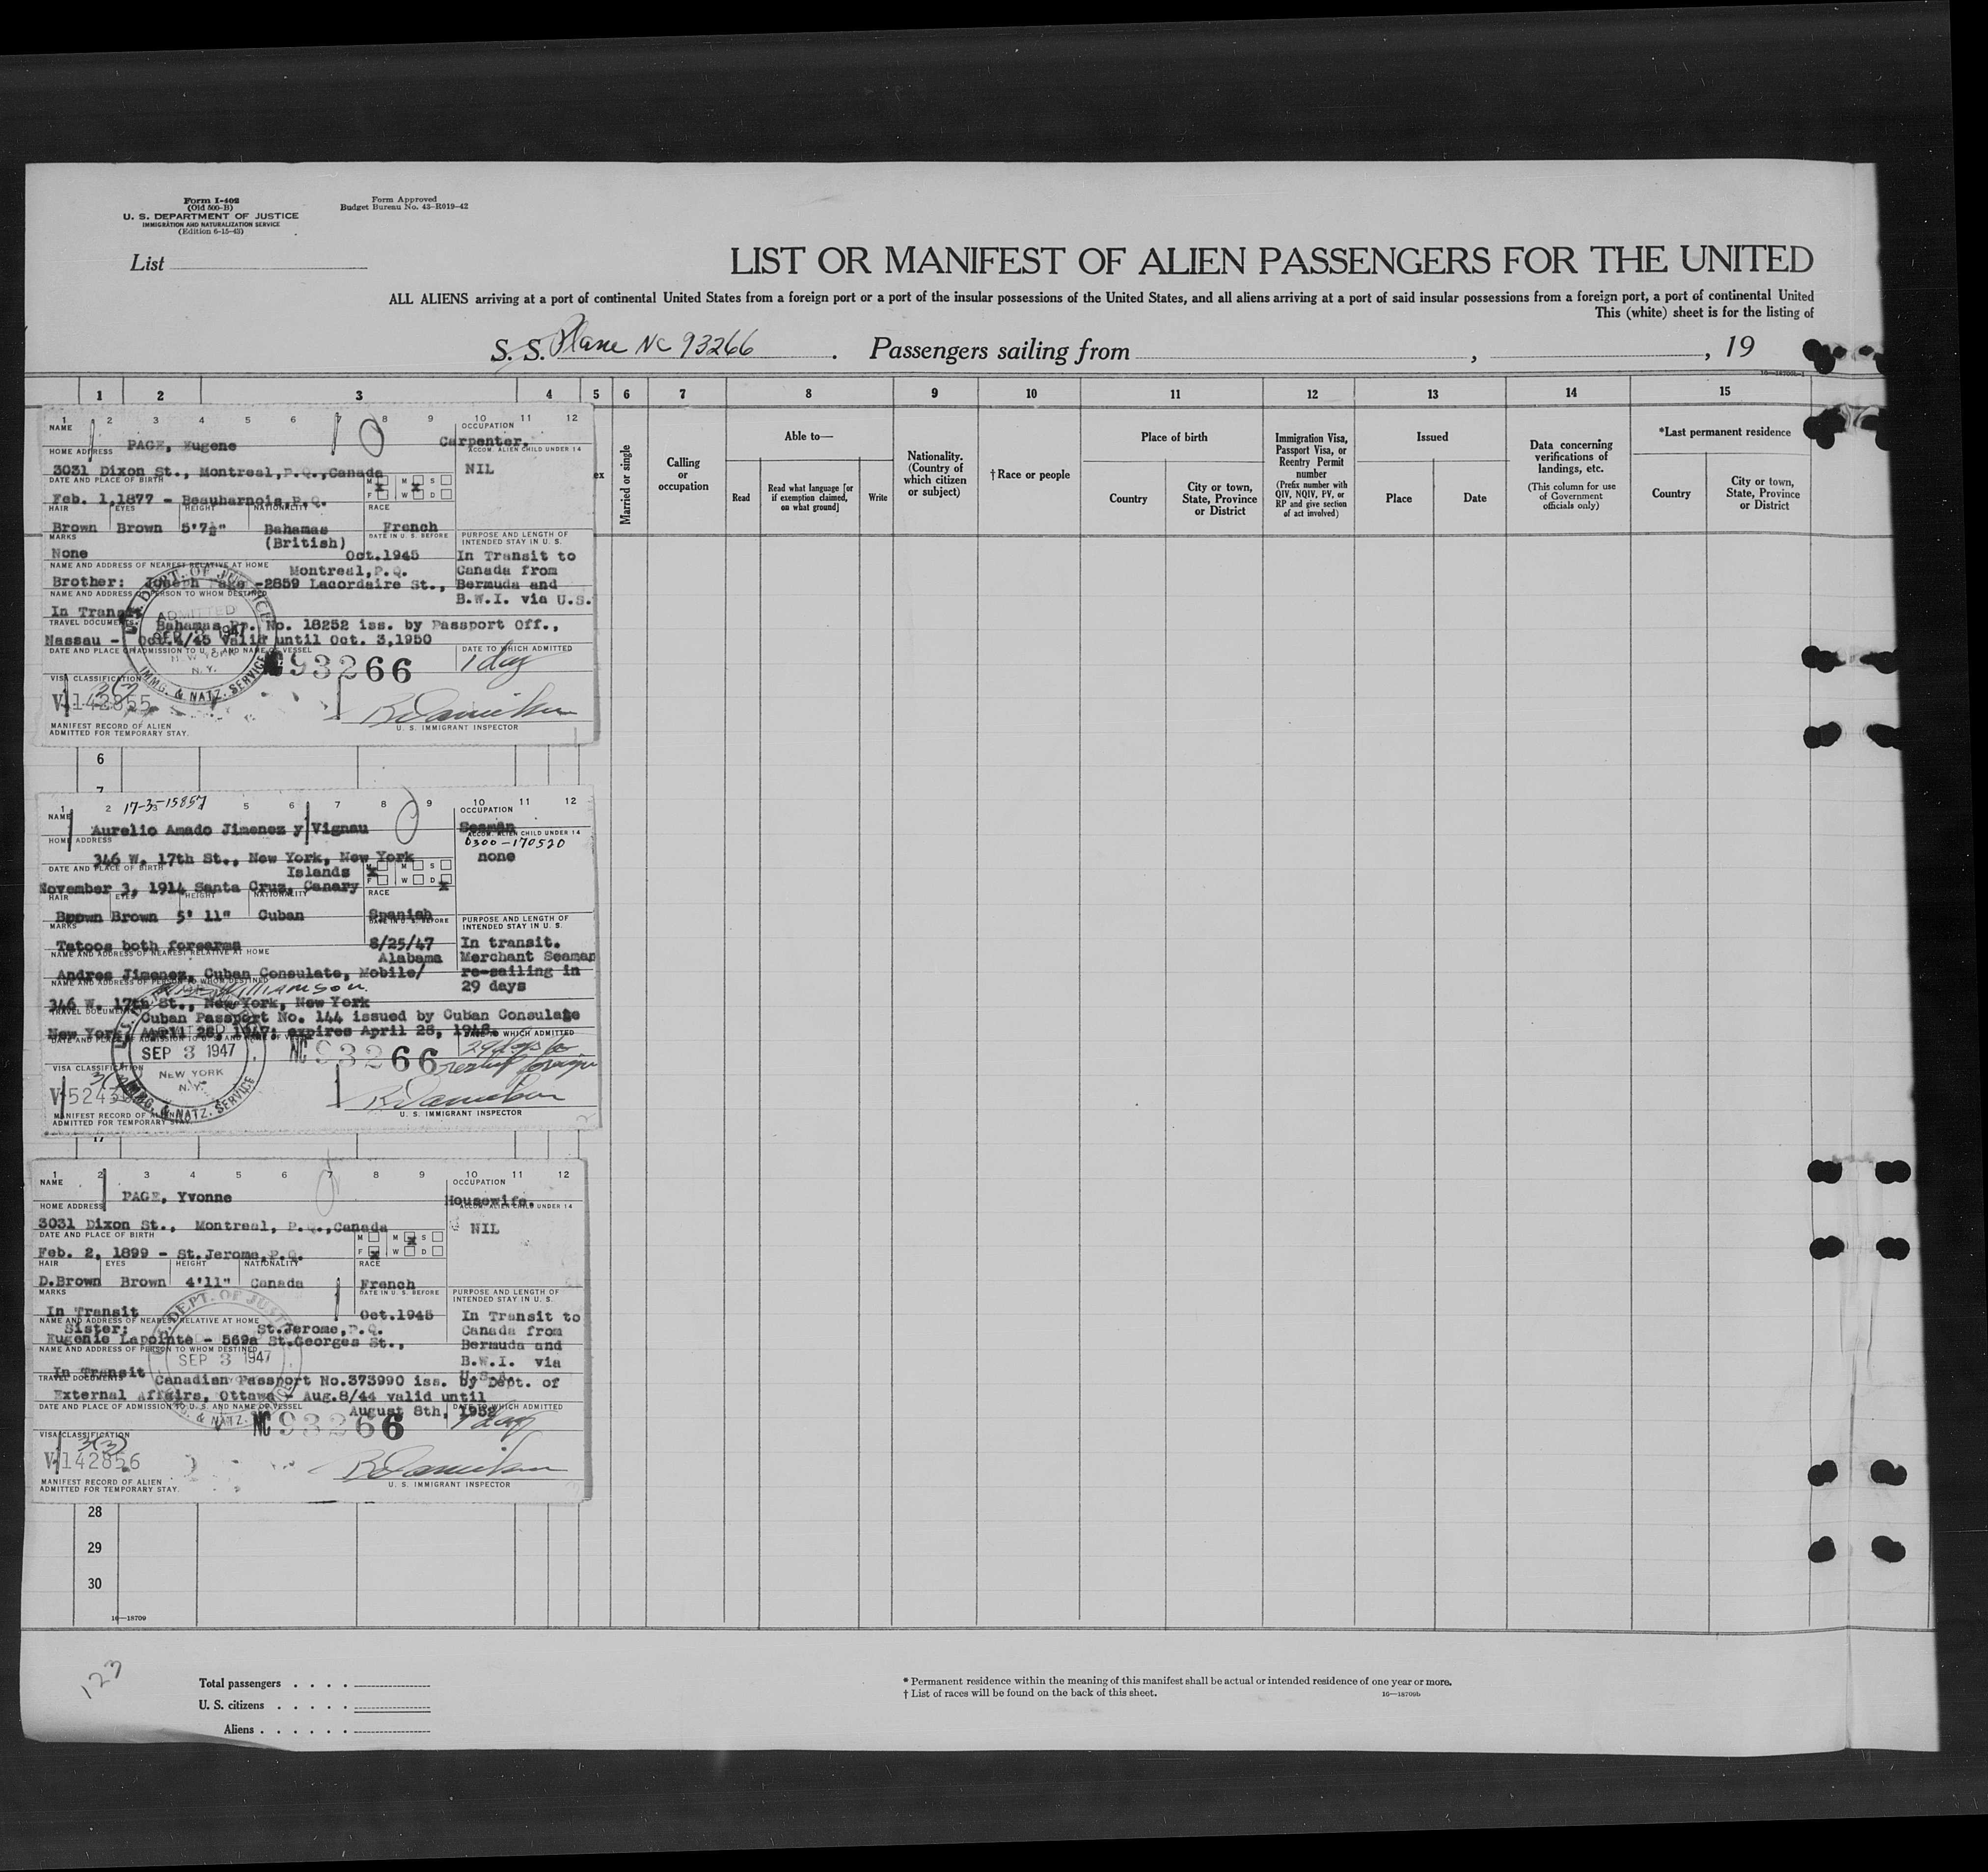 Form I-402
(Old 500-B)
U. S. DEPARTMENT OF JUSTICE
IMMIGRATION AND NATURALIZATION SERVICE
(Edition 6-15-43)
Form Approved
Budget Bureau No. 43-R019-42
List
LIST OR MANIFEST OF ALIEN PASSENGERS FOR THE UNITED
ALL ALIENS arriving at a port of continental United States from a foreign port or a port of the insular possessions of the United States, and all aliens arriving at a port of said insular possessions from a foreign port, a port of continental United
This (white) sheet is for the listing of
S. S. Plane NC 93266 . Passengers sailing from , , 19
16—18709b-1
1 2 3 4 5 6 7 8 9 10 11 12 13 14 15
ex
Married or single
Calling
or
occupation
Able to—
Read
Read what language [or
if exemption claimed,
on what ground]
Write
Nationality.
(Country of
which citizen
or subject)
†Race or people
Place of birth
Country
City or town,
State, Province
or District
Immigration Visa,
Passport Visa, or
Reentry Permit
number
(Prefix number with
QIV, NQIV, PV, or
RP and give section
of act involved)
Issued
Place
Date
Data concerning
verifications of
landings, etc.
(This column for use
of Government
officials only)
*Last permanent residence
Country
City or town,
State, Province
or District
1 2 3 4 5 6 7 8 9 10 11 12
NAME
OCCUPATION
PAGE, Eugene
Carpenter.
HOME ADDRESS
ACCOM. ALIEN CHILD UNDER 14
3031 Dixon St., Montreal,P.Q.,Canada
NIL
DATE AND PLACE OF BIRTH
M M S
F W D
Feb. 1,1877 - Beauharnois,P.Q.
HAIR EYES HEIGHT NATIONALITY RACE
Brown Brown 5'7½" Bahamas French
(British)
MARKS
DATE IN U. S. BEFORE
PURPOSE AND LENGTH OF
INTENDED STAY IN U. S.
None
Oct.1945
In Transit to
NAME AND ADDRESS OF NEAREST RELATIVE AT HOME
Montreal,P.Q.
Canada from
Brother: Joseph Page -2859 Lacordaire St.,
Bermuda and
NAME AND ADDRESS OF PERSON TO WHOM DESTINED
B.W.I. via U.S.
In Transit
TRAVEL DOCUMENTS
Bahamas Pp. No. 18252 iss. by Passport Off.,
Nassau - Oct.4/45 Valid until Oct. 3,1950
DATE AND PLACE OF ADMISSION TO U. S. AND NAME OF VESSEL
DATE TO WHICH ADMITTED
U.S. DEPT. OF JUSTICE
ADMITTED
SEP 3 1947
NEW YORK
N. Y.
IMMG. & NATZ. SERVICE
NC93266
1 day
VISA CLASSIFICATION
3(3)
V-142855
MANIFEST RECORD OF ALIEN
ADMITTED FOR TEMPORARY STAY.
U. S. IMMIGRANT INSPECTOR
6
7
1 2 17-3-15857 5 6 7 8 9 10 11 12
NAME
OCCUPATION
Aurelio Amado Jimenez y Vignau
Seaman
HOME ADDRESS
ACCOM. ALIEN CHILD UNDER 14
0300-170520
346 W. 17th St., New York, New York
none
DATE AND PLACE OF BIRTH
Islands
M M S
F W D
November 3, 1914 Santa Cruz, Canary
HAIR EYES HEIGHT NATIONALITY RACE
Brown Brown 5' 11" Cuban Spanish
MARKS
DATE IN U. S. BEFORE
PURPOSE AND LENGTH OF
INTENDED STAY IN U. S.
Tatoos both forearms
8/25/47
In transit.
NAME AND ADDRESS OF NEAREST RELATIVE AT HOME
Alabama
Merchant Seaman
Andres Jimenez, Cuban Consulate, Mobile/
re-sailing in
NAME AND ADDRESS OF PERSON TO WHOM DESTINED
29 days
346 W. 17th St., New York, New York
TRAVEL DOCUMENTS
Cuban Passport No. 144 issued by Cuban Consulate
New York, April 28, 1947; expires April 28, 1948.
DATE AND PLACE OF ADMISSION TO U. S. AND NAME OF VESSEL
DATE TO WHICH ADMITTED
SEP 3 1947
NEW YORK
N. Y.
IMMG. & NATZ. SERVICE
NC93266
29 days to
reship foreign
VISA CLASSIFICATION
MANIFEST RECORD OF ALIEN
ADMITTED FOR TEMPORARY STAY.
U. S. IMMIGRANT INSPECTOR
17
1 2 3 4 5 6 7 8 9 10 11 12
NAME
OCCUPATION
PAGE, Yvonne
Housewife.
HOME ADDRESS
ACCOM. ALIEN CHILD UNDER 14
3031 Dixon St., Montreal, P.Q.,Canada
NIL
DATE AND PLACE OF BIRTH
M M S
F W D
Feb. 2, 1899 - St.Jerome,P.Q.
HAIR EYES HEIGHT NATIONALITY RACE
D.Brown Brown 4'11" Canada French
MARKS
DATE IN U. S. BEFORE
PURPOSE AND LENGTH OF
INTENDED STAY IN U. S.
In Transit
Oct.1945
In Transit to
NAME AND ADDRESS OF NEAREST RELATIVE AT HOME
Sister: St.Jerome,P.Q.
Canada from
Eugenie Lapointe - 569a St.Georges St.,
Bermuda and
NAME AND ADDRESS OF PERSON TO WHOM DESTINED
B.W.I. via
U.S.A.
In Transit
TRAVEL DOCUMENTS
Canadian Passport No.373990 iss. by Dept. of
External Affairs, Ottawa - Aug.8/44 valid until
August 8th, 1952
DATE AND PLACE OF ADMISSION TO U. S. AND NAME OF VESSEL
DATE TO WHICH ADMITTED
DEPT. OF JUSTICE
SEP 3 1947
& NATZ.
NC93266
1 day
VISA CLASSIFICATION
3(3)
V-142856
MANIFEST RECORD OF ALIEN
ADMITTED FOR TEMPORARY STAY.
U. S. IMMIGRANT INSPECTOR
28
29
30
16—18709
123
Total passengers . . . .
U. S. citizens . . . . .
Aliens . . . . . .
* Permanent residence within the meaning of this manifest shall be actual or intended residence of one year or more.
† List of races will be found on the back of this sheet.
16—18709b